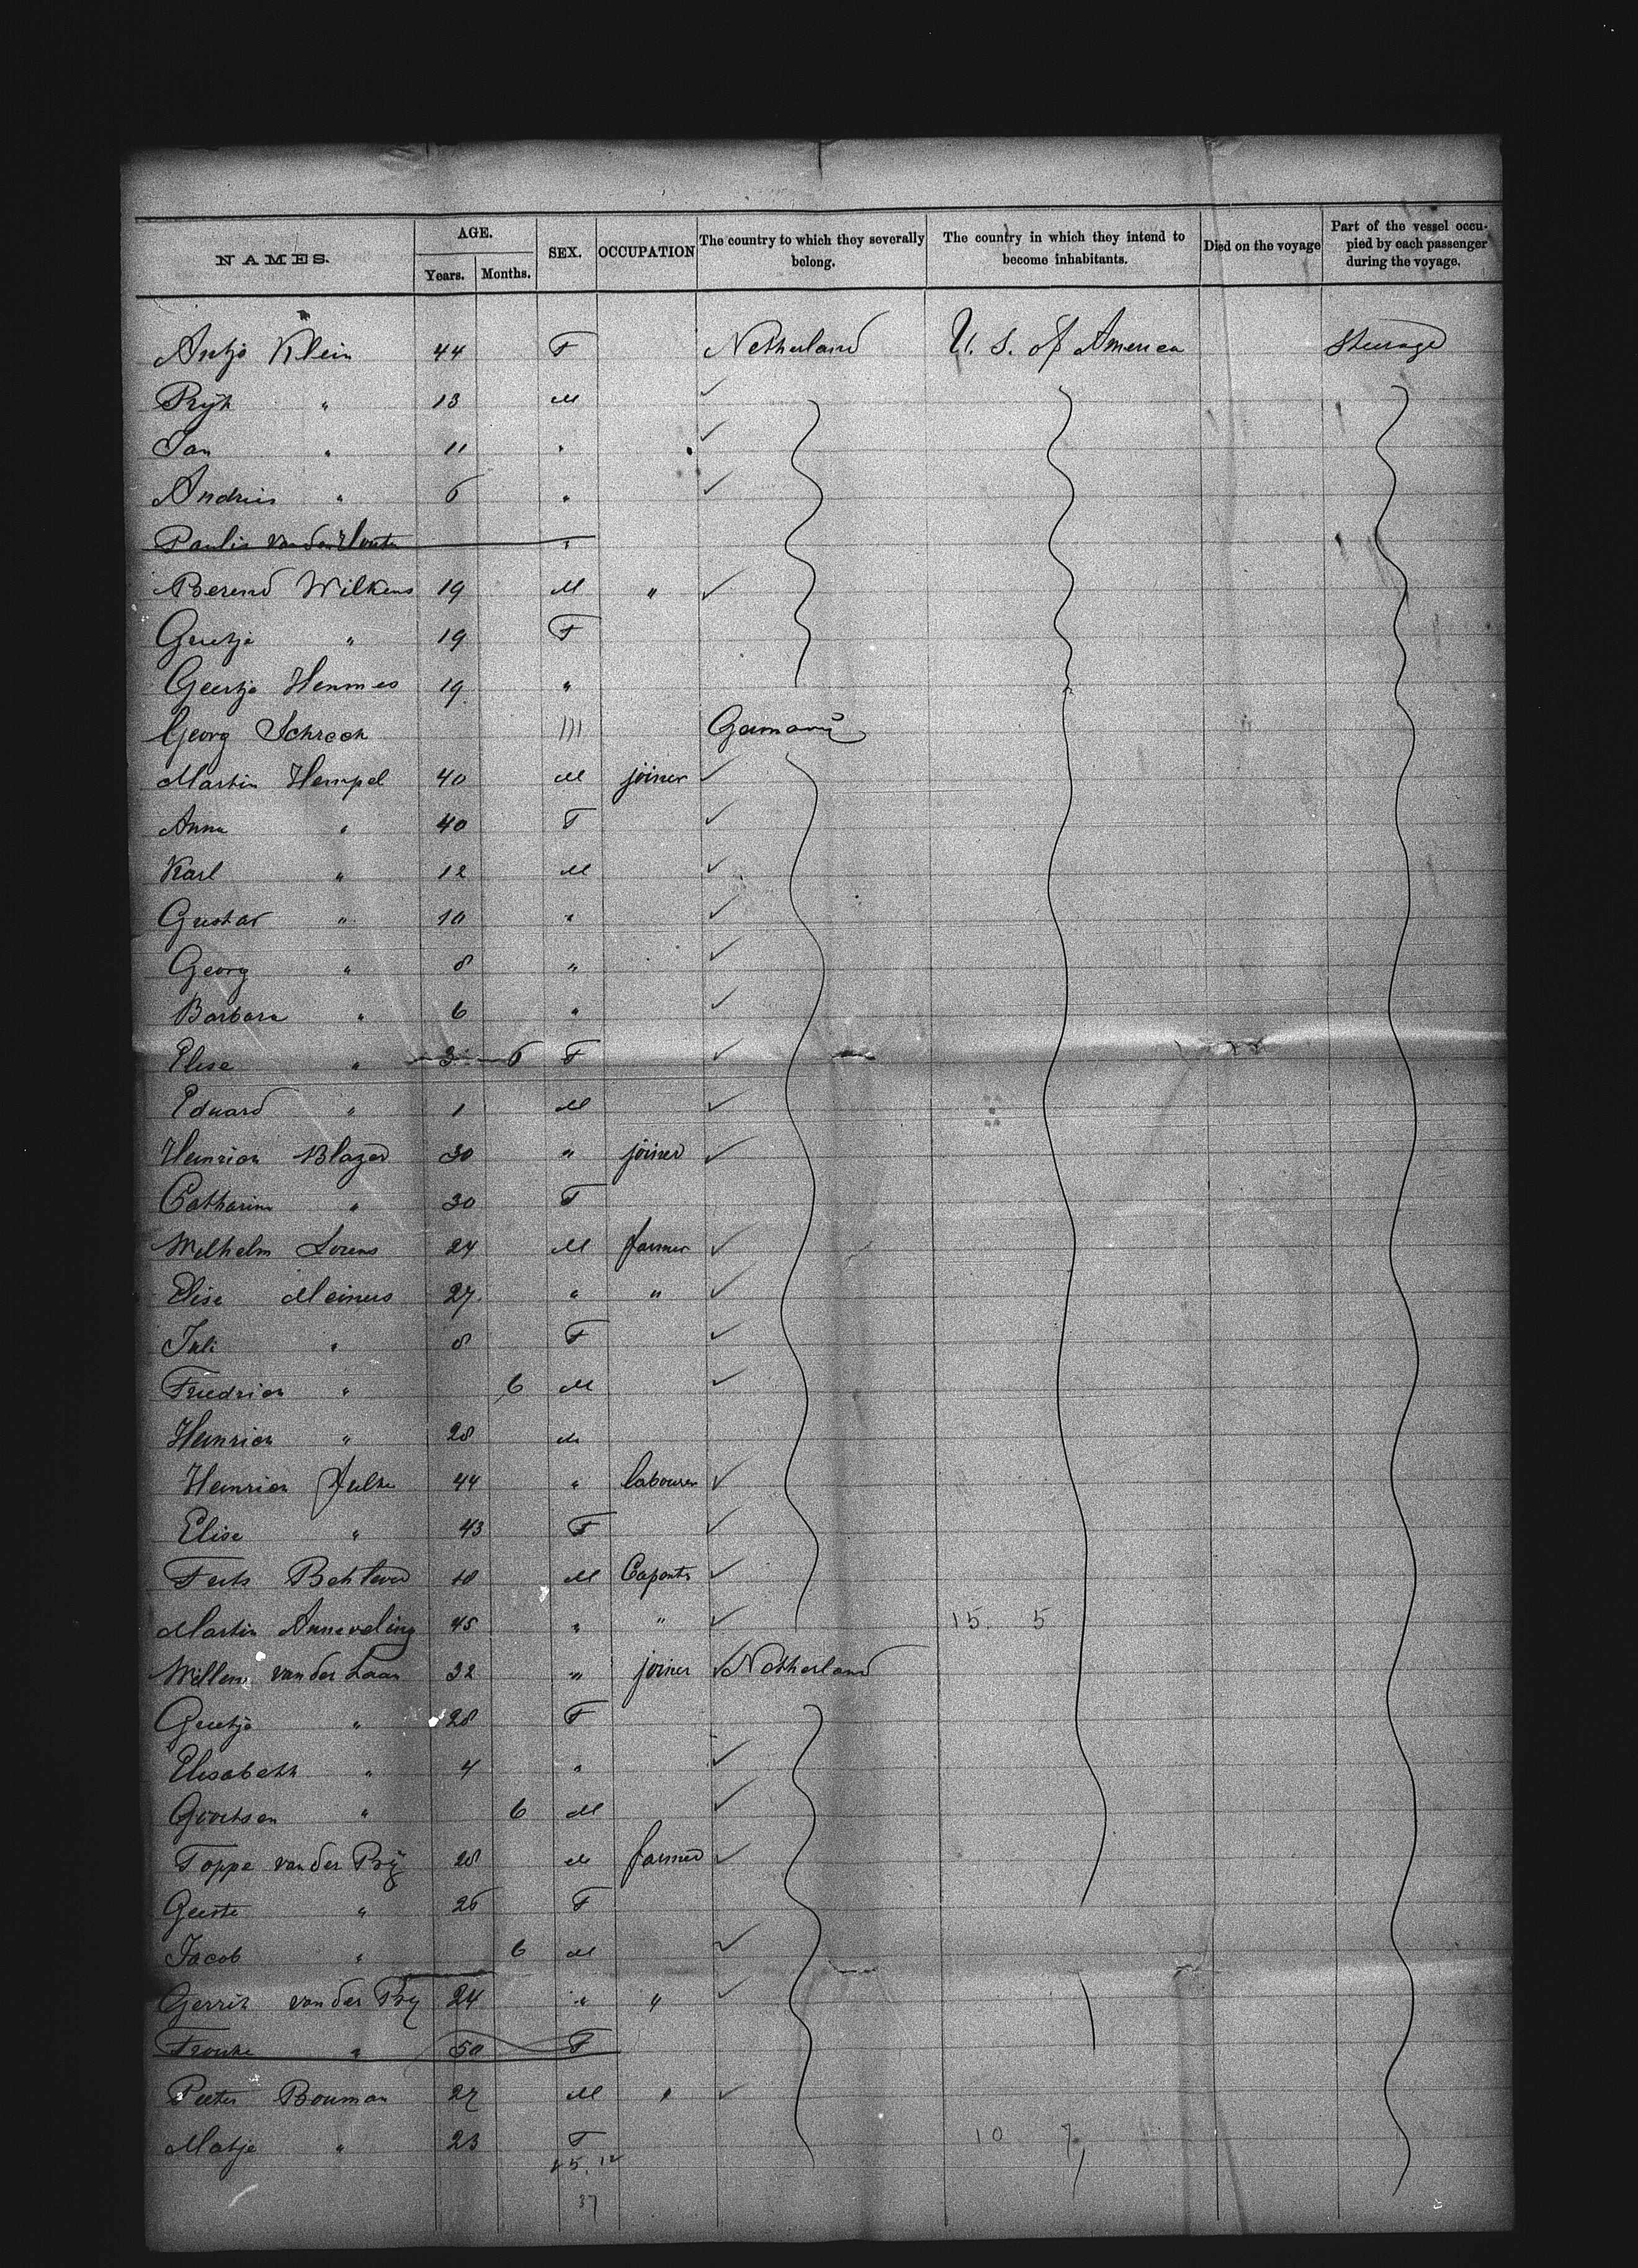 NAMES. AGE. Years. Months. SEX. OCCUPATION The country to which they severally belong. The country in which they intend to become inhabitants. Died on the voyage Part of the vessel occupied by each passenger during the voyage.
Antje Klein 44 F Netherland U. S. of America Steerage
" 13 M
Jan " 11 "
Andries " 6 "
Paulis van der "
Berend Wilkens 19 M "
Geertje " 19 F
Geertje Hemmes 19 "
Georg Schreck Germany
Martin Hempel 40 M joiner
Anna " 40 F
Karl " 12 M
Gustav " 10 "
Georg " 8 "
Barbara " 6 "
Elise " 3 6 F
Eduard " 1 M
Heinrich Blazer 30 " joiner
Catharina " 30 F
Wilhelm Lorens 24 M farmer
Elise Meiners 27 " "
Juli " 8 F
Friedrich " 6 M
Heinrich " 28 M
Heinrich 44 " labourer
Elise " 43 F
18 M
Martin Anneveling 45 " " 15. 5
Willem van der Laan 32 " joiner Netherland
Geertje " 28 F
Elisabeth " 4 "
" 6 M
Foppe van der 28 M farmer
Geeste " 26 F
Jacob " 6 M
Gerrit van der 24 " "
Frouke " 50 F
Pieter Bouman 27 M "
Matje " 23 F 10 7
25. 12
37